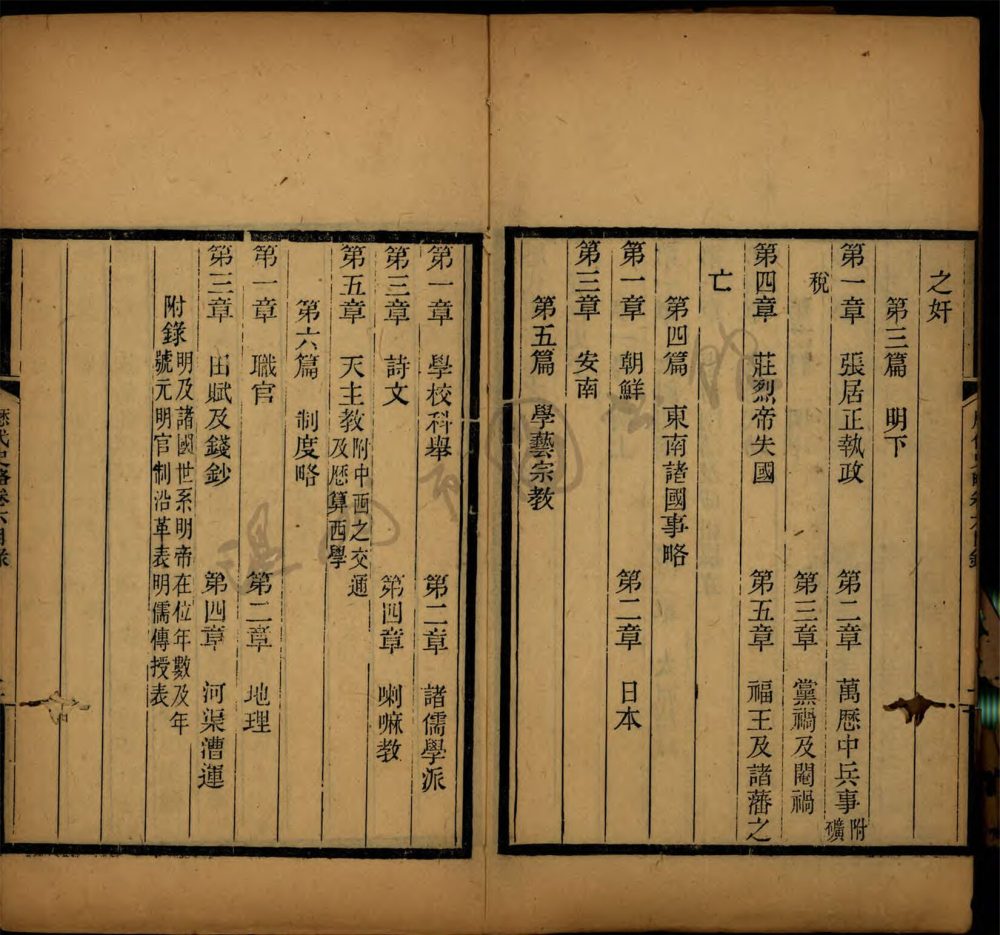 之奸
第三篇 明下
第一章 張居正執政 第二章 萬歷中兵事附礦
稅 第三章 黨禍及閹禍
第四章 莊烈帝失國 第五章 福王及諸藩之
亡
第四篇 東南諸國事略
第一章 朝鮮 第二章 日本
第三章 安南
第五篇 學藝宗教
第一章 學校科舉 第二章 諸儒學派
第三章 詩文 第四章 喇嘛教
第五章 天主教附中西之交通
及歷算西學
第六篇 制度略
第一章 職官 第二章 地理
第三章 田賦及錢鈔 第四章 河渠漕運
附錄明及諸國世系明帝在位年數及年
號元明官制沿革表明儒傳授表
歷代史略卷六目錄